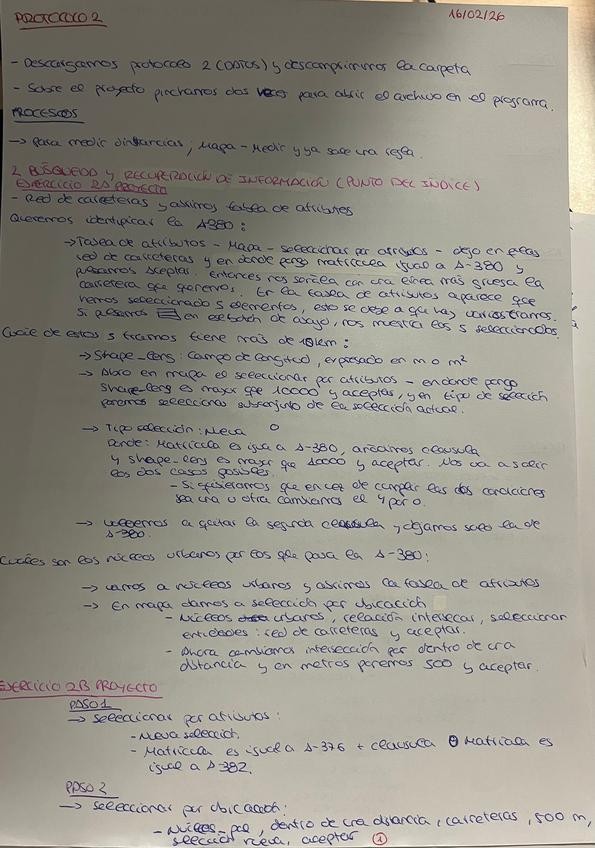 PROTOCOLO 2
16/02/26
- Descargamos protocolo 2 (DATOS) y descomprimimos la carpeta
- Sobre el proyecto pinchamos dos veces para abrir el archivo en el programa.
PROCESOS
→ Para medir distancias; Mapa - Medir y ya sale una regla.
2 BÚSQUEDA y RECUPERACIÓN DE INFORMACIÓN (PUNTO DEL ÍNDICE)
EJERCICIO 2A PROYECTO
- Red de carreteras y abrimos tabla de atributos
Queremos identificar la A380:
→ Tabla de atributos - Mapa - seleccionar por atributos - dejo en filas
red de carreteras y en donde pongo matrícula igual a A-380 y
pulsamos aceptar. Entonces nos señala con una línea más gruesa la
carretera que queremos. En la tabla de atributos aparece que
hemos seleccionado 5 elementos, esto se debe a que hay varios tramos.
Si pulsamos en el botón de abajo, nos muestra los 5 seleccionados.
Cuál de estos 5 tramos tiene más de 10km:
→ Shape_leng: campo de longitud, expresado en m o m²
→ Abro en mapa el seleccionar por atributos - en donde pongo
Shape_leng es mayor que 10000 y aceptar, y en tipo de selección
ponemos seleccionar subconjunto de la selección actual.
→ Tipo selección: Nueva
Donde: Matrícula es igual a A-380, añadimos cláusula
y shape_leng es mayor que 10000 y aceptar. Nos va a salir
los dos casos posibles.
- Si quisiéramos que en vez de cumplir las dos condiciones
sea una u otra cambiamos el Y por O.
→ volvemos a quitar la segunda cláusula y dejamos solo la de
A-380.
Cuáles son los núcleos urbanos por los que pasa la A-380:
→ vamos a núcleos urbanos y abrimos la tabla de atributos
→ En mapa damos a selección por ubicación
- Núcleos urbanos, relación intersecar, seleccionar
entidades: red de carreteras y aceptar.
- Ahora cambiamos intersección por dentro de una
distancia y en metros ponemos 500 y aceptar.
EJERCICIO 2B PROYECTO
PASO 1
→ Seleccionar por atributos:
- Nueva selección
- Matrícula es igual a A-376 + cláusula O Matrícula es
igual a A-382.
PASO 2
→ Seleccionar por ubicación:
- Núcleos-pob, dentro de una distancia, carreteras, 500 m,
selección nueva, aceptar 1